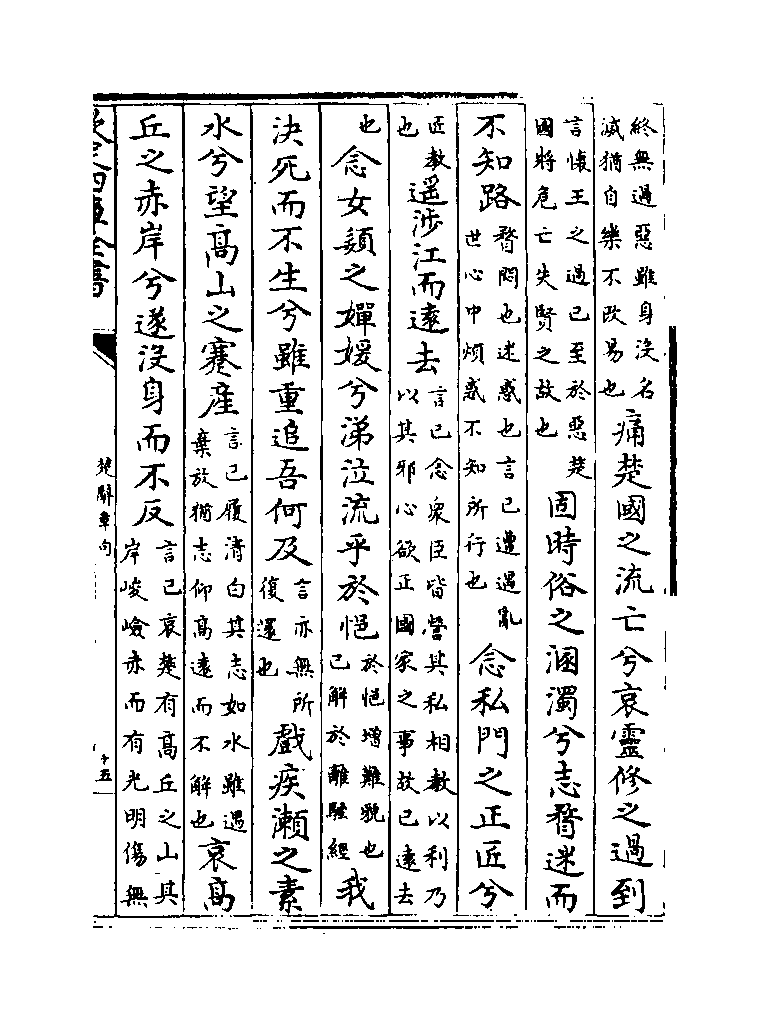 終無過惡雖身没名
滅猶自樂不改易也
痛楚國之流亡兮哀靈修之過到
言懷王之過已至於惡楚
國將危亡失賢之故也
固時俗之溷濁兮志瞀迷而
不知路
瞀悶也迷惑也言已遭遇亂
世心中煩惑不知所行也
念私門之正匠兮
匠教
也
遥涉江而逺去
言已念衆臣皆營其私相教以利乃
以其邪心欲正國家之事故已逺去
也
念女嬃之嬋媛兮涕泣流乎於悒
於悒增難貌也
已解於離騷經
我
決死而不生兮雖重追吾何及
言亦無所
復還也
戲疾瀬之素
水兮望髙山之蹇産
言已履清白其志如水雖遇
棄放猶志仰髙逺而不解也
哀髙
丘之赤岸兮遂没身而不反
言已哀楚有髙丘之山其
岸峻嶮赤而有光明傷無
欽定四庫全書
楚辭章句
十五